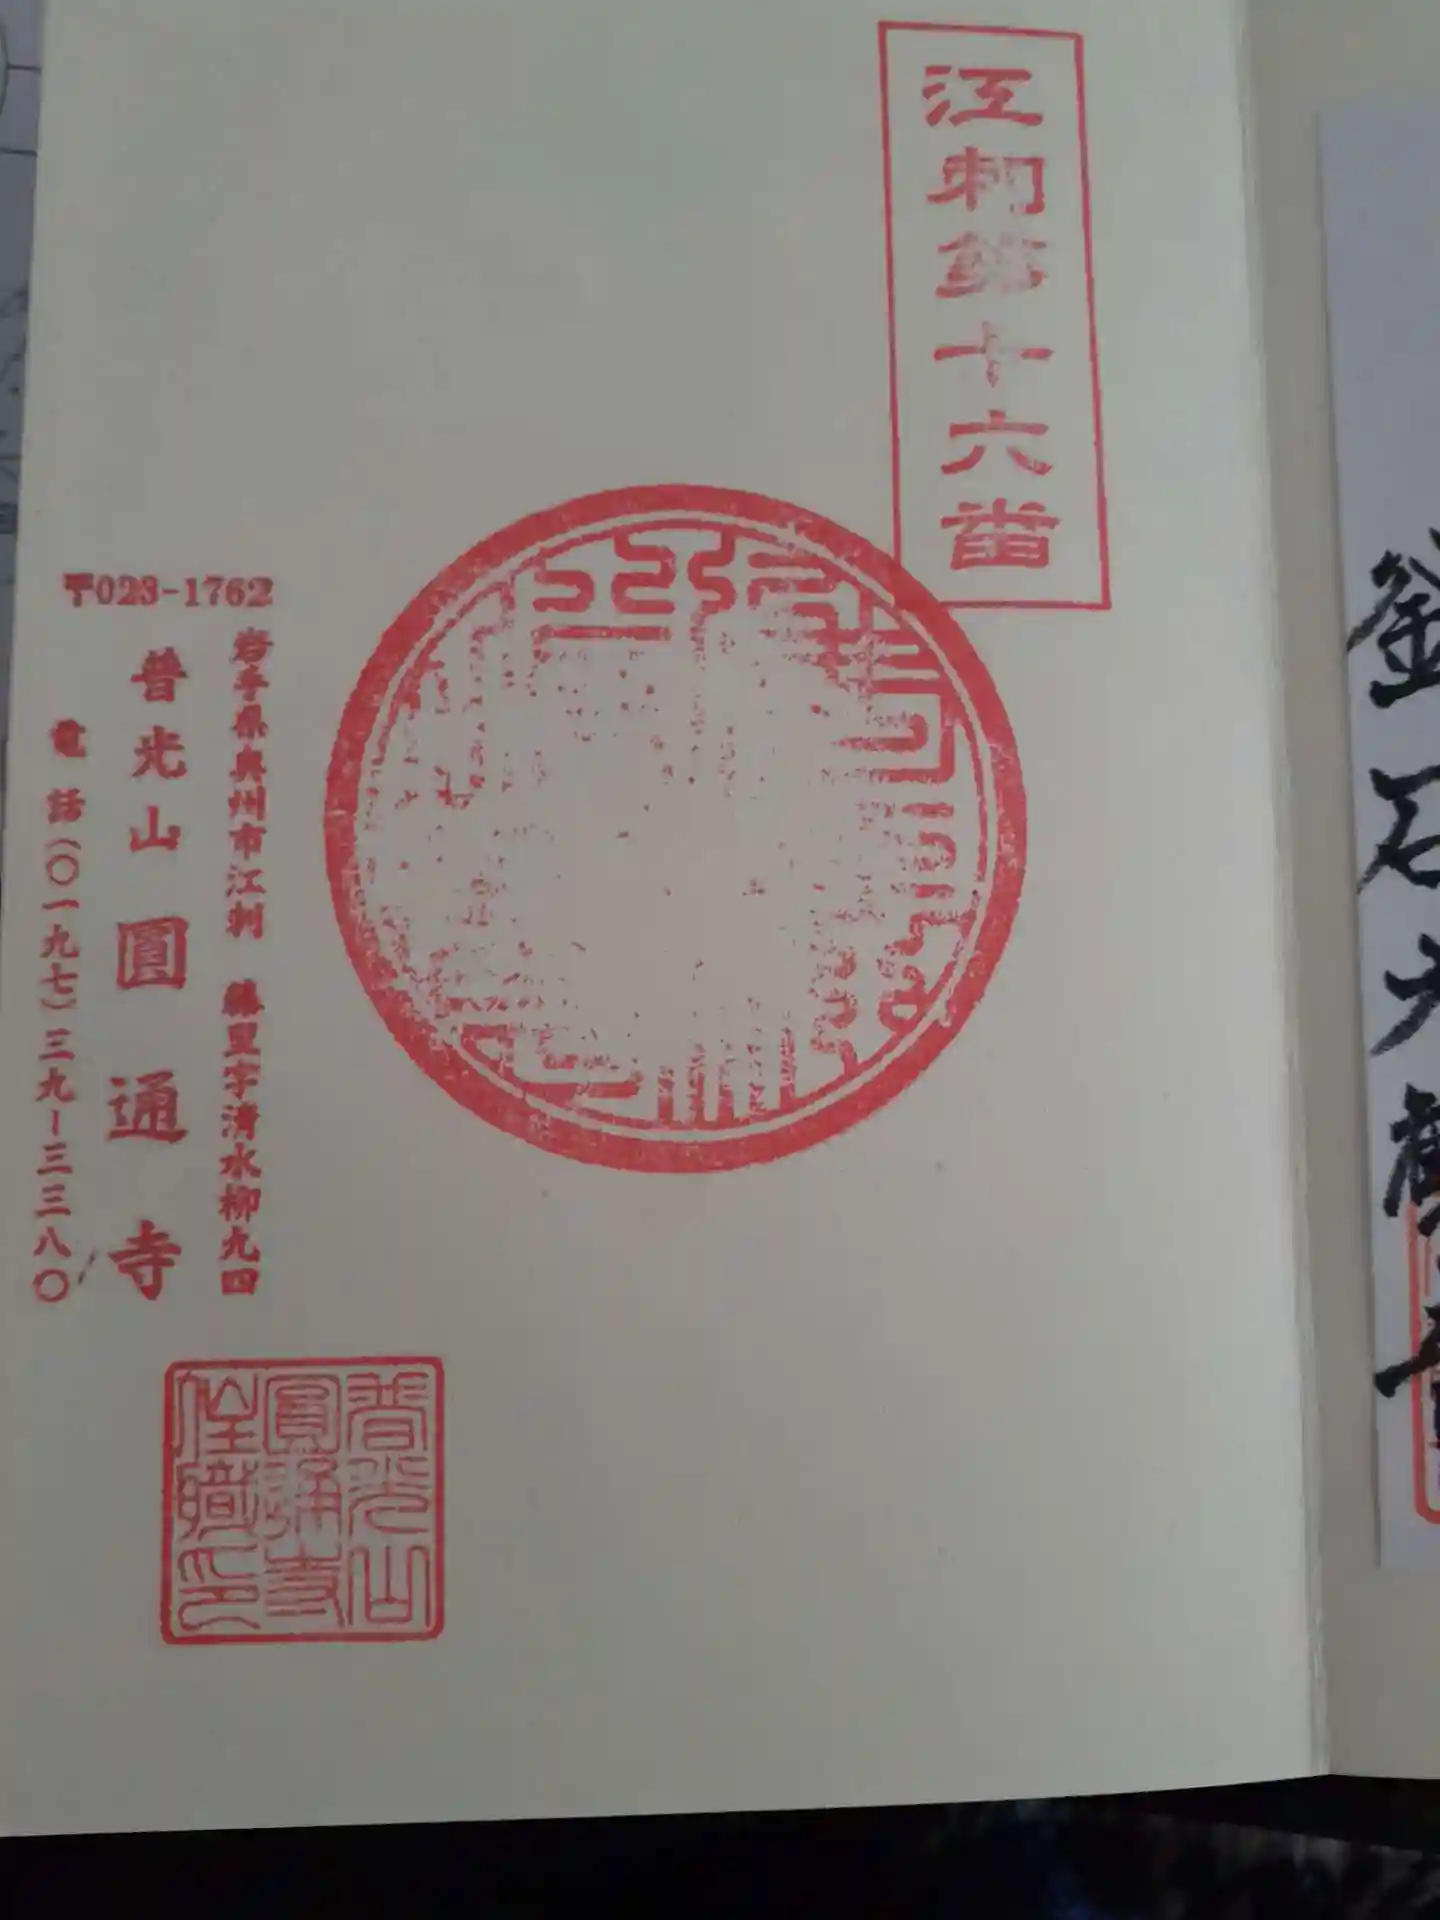 江刺第十六番
〒023-1762
岩手県奥州市江刺 藤里字清水柳九四
普光山 圓通寺
電話(〇一九七)三九ー三三八〇
普光山
圓通寺
住職印
釜石大観音